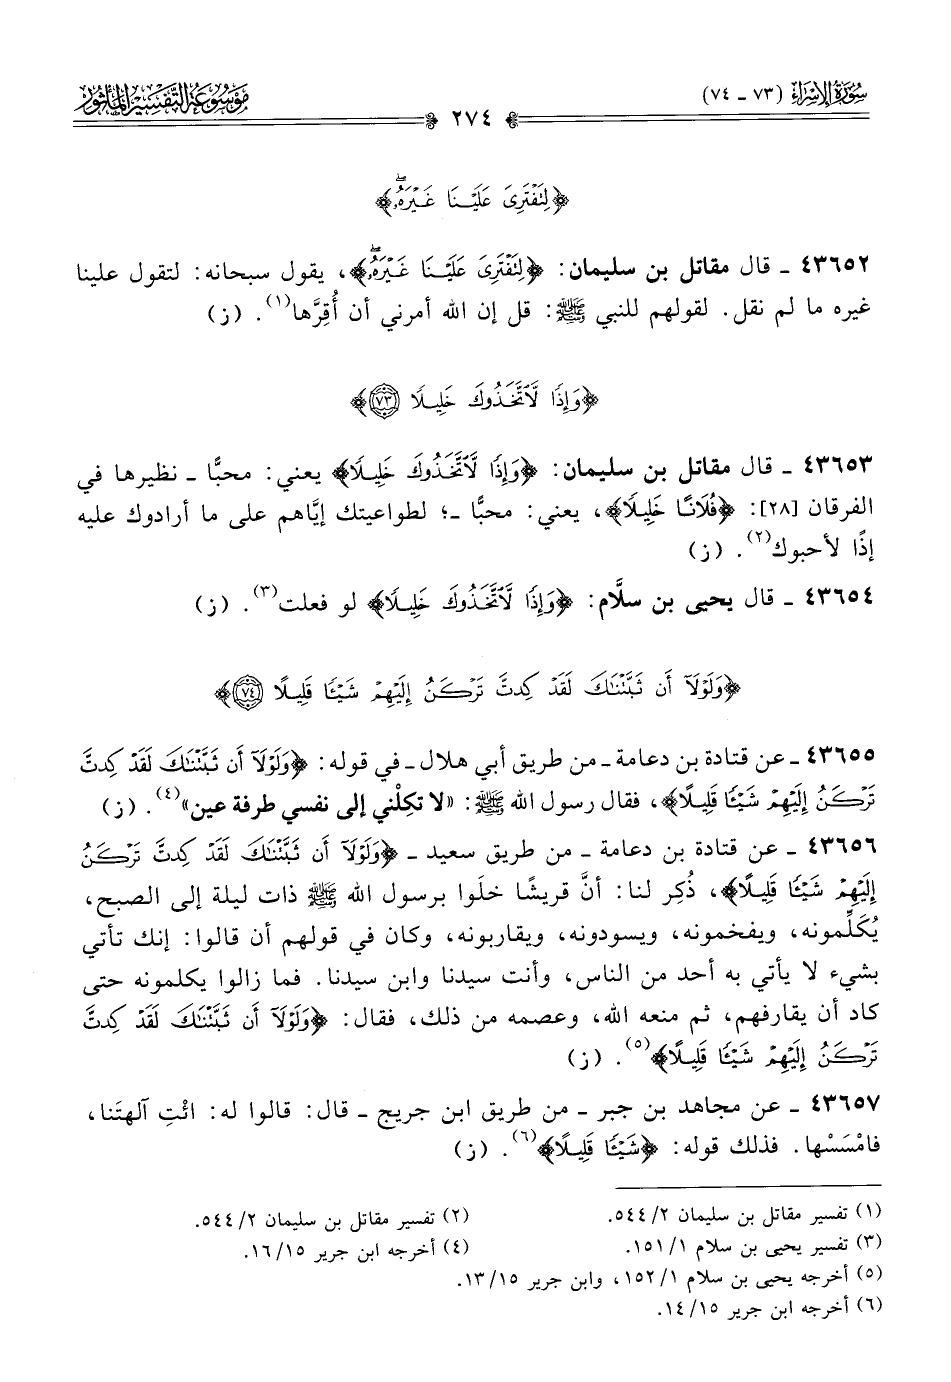 سورة الإسراء (٧٣ - ٧٤)
موسوعة التفسير المأثور
٢٧٤
﴿لِتَفْتَرِىَ عَلَيْنَا غَيْرَهُۥۖ﴾
٤٣٦٥٢ ـ قال مقاتل بن سليمان: ﴿لِتَفْتَرِىَ عَلَيْنَا غَيْرَهُۥۖ﴾، يقول سبحانه: لتقول علينا
غيره ما لم نقل. لقولهم للنبي ﷺ: قل إن الله أمرني أن أُقِرَّها(١). (ز)
﴿وَإِذًا لَّٱتَّخَذُوكَ خَلِيلًا ﴿٧٣﴾﴾
٤٣٦٥٣ ـ قال مقاتل بن سليمان: ﴿وَإِذًا لَّٱتَّخَذُوكَ خَلِيلًا﴾ يعني: محبًّا ـ نظيرها في
الفرقان [٢٨]: ﴿فُلَانًا خَلِيلًا﴾، يعني: محبًّا ـ؛ لطواعيتك إيَّاهم على ما أرادوك عليه
إذًا لأحبوك(٢). (ز)
٤٣٦٥٤ ـ قال يحيى بن سلَّام: ﴿وَإِذًا لَّٱتَّخَذُوكَ خَلِيلًا﴾ لو فعلت(٣). (ز)
﴿وَلَوْلَآ أَن ثَبَّتْنَٰكَ لَقَدْ كِدتَّ تَرْكَنُ إِلَيْهِمْ شَيْـًٔا قَلِيلًا ﴿٧٤﴾﴾
٤٣٦٥٥ ـ عن قتادة بن دعامة ـ من طريق أبي هلال ـ في قوله: ﴿وَلَوْلَآ أَن ثَبَّتْنَٰكَ لَقَدْ كِدتَّ
تَرْكَنُ إِلَيْهِمْ شَيْـًٔا قَلِيلًا﴾، فقال رسول الله ﷺ: «لا تكِلْني إلى نفسي طرفة عين»(٤). (ز)
٤٣٦٥٦ ـ عن قتادة بن دعامة ـ من طريق سعيد ـ ﴿وَلَوْلَآ أَن ثَبَّتْنَٰكَ لَقَدْ كِدتَّ تَرْكَنُ
إِلَيْهِمْ شَيْـًٔا قَلِيلًا﴾، ذُكِر لنا: أنَّ قريشًا خلَوا برسول الله ﷺ ذات ليلة إلى الصبح،
يُكَلِّمونه، ويفخمونه، ويسودونه، ويقاربونه، وكان في قولهم أن قالوا: إنك تأتي
بشيء لا يأتي به أحد من الناس، وأنت سيدنا وابن سيدنا. فما زالوا يكلمونه حتى
كاد أن يقارفهم، ثم منعه الله، وعصمه من ذلك، فقال: ﴿وَلَوْلَآ أَن ثَبَّتْنَٰكَ لَقَدْ كِدتَّ
تَرْكَنُ إِلَيْهِمْ شَيْـًٔا قَلِيلًا﴾(٥). (ز)
٤٣٦٥٧ ـ عن مجاهد بن جبر ـ من طريق ابن جريج ـ قال: قالوا له: ائْتِ آلهتَنا،
فامْسَسْها. فذلك قوله: ﴿شَيْـًٔا قَلِيلًا﴾(٦). (ز)
(١) تفسير مقاتل بن سليمان ٢/ ٥٤٤.
(٢) تفسير مقاتل بن سليمان ٢/ ٥٤٤.
(٣) تفسير يحيى بن سلام ١/ ١٥١.
(٤) أخرجه ابن جرير ١٥/ ١٦.
(٥) أخرجه يحيى بن سلام ١/ ١٥٢، وابن جرير ١٥/ ١٣.
(٦) أخرجه ابن جرير ١٥/ ١٤.